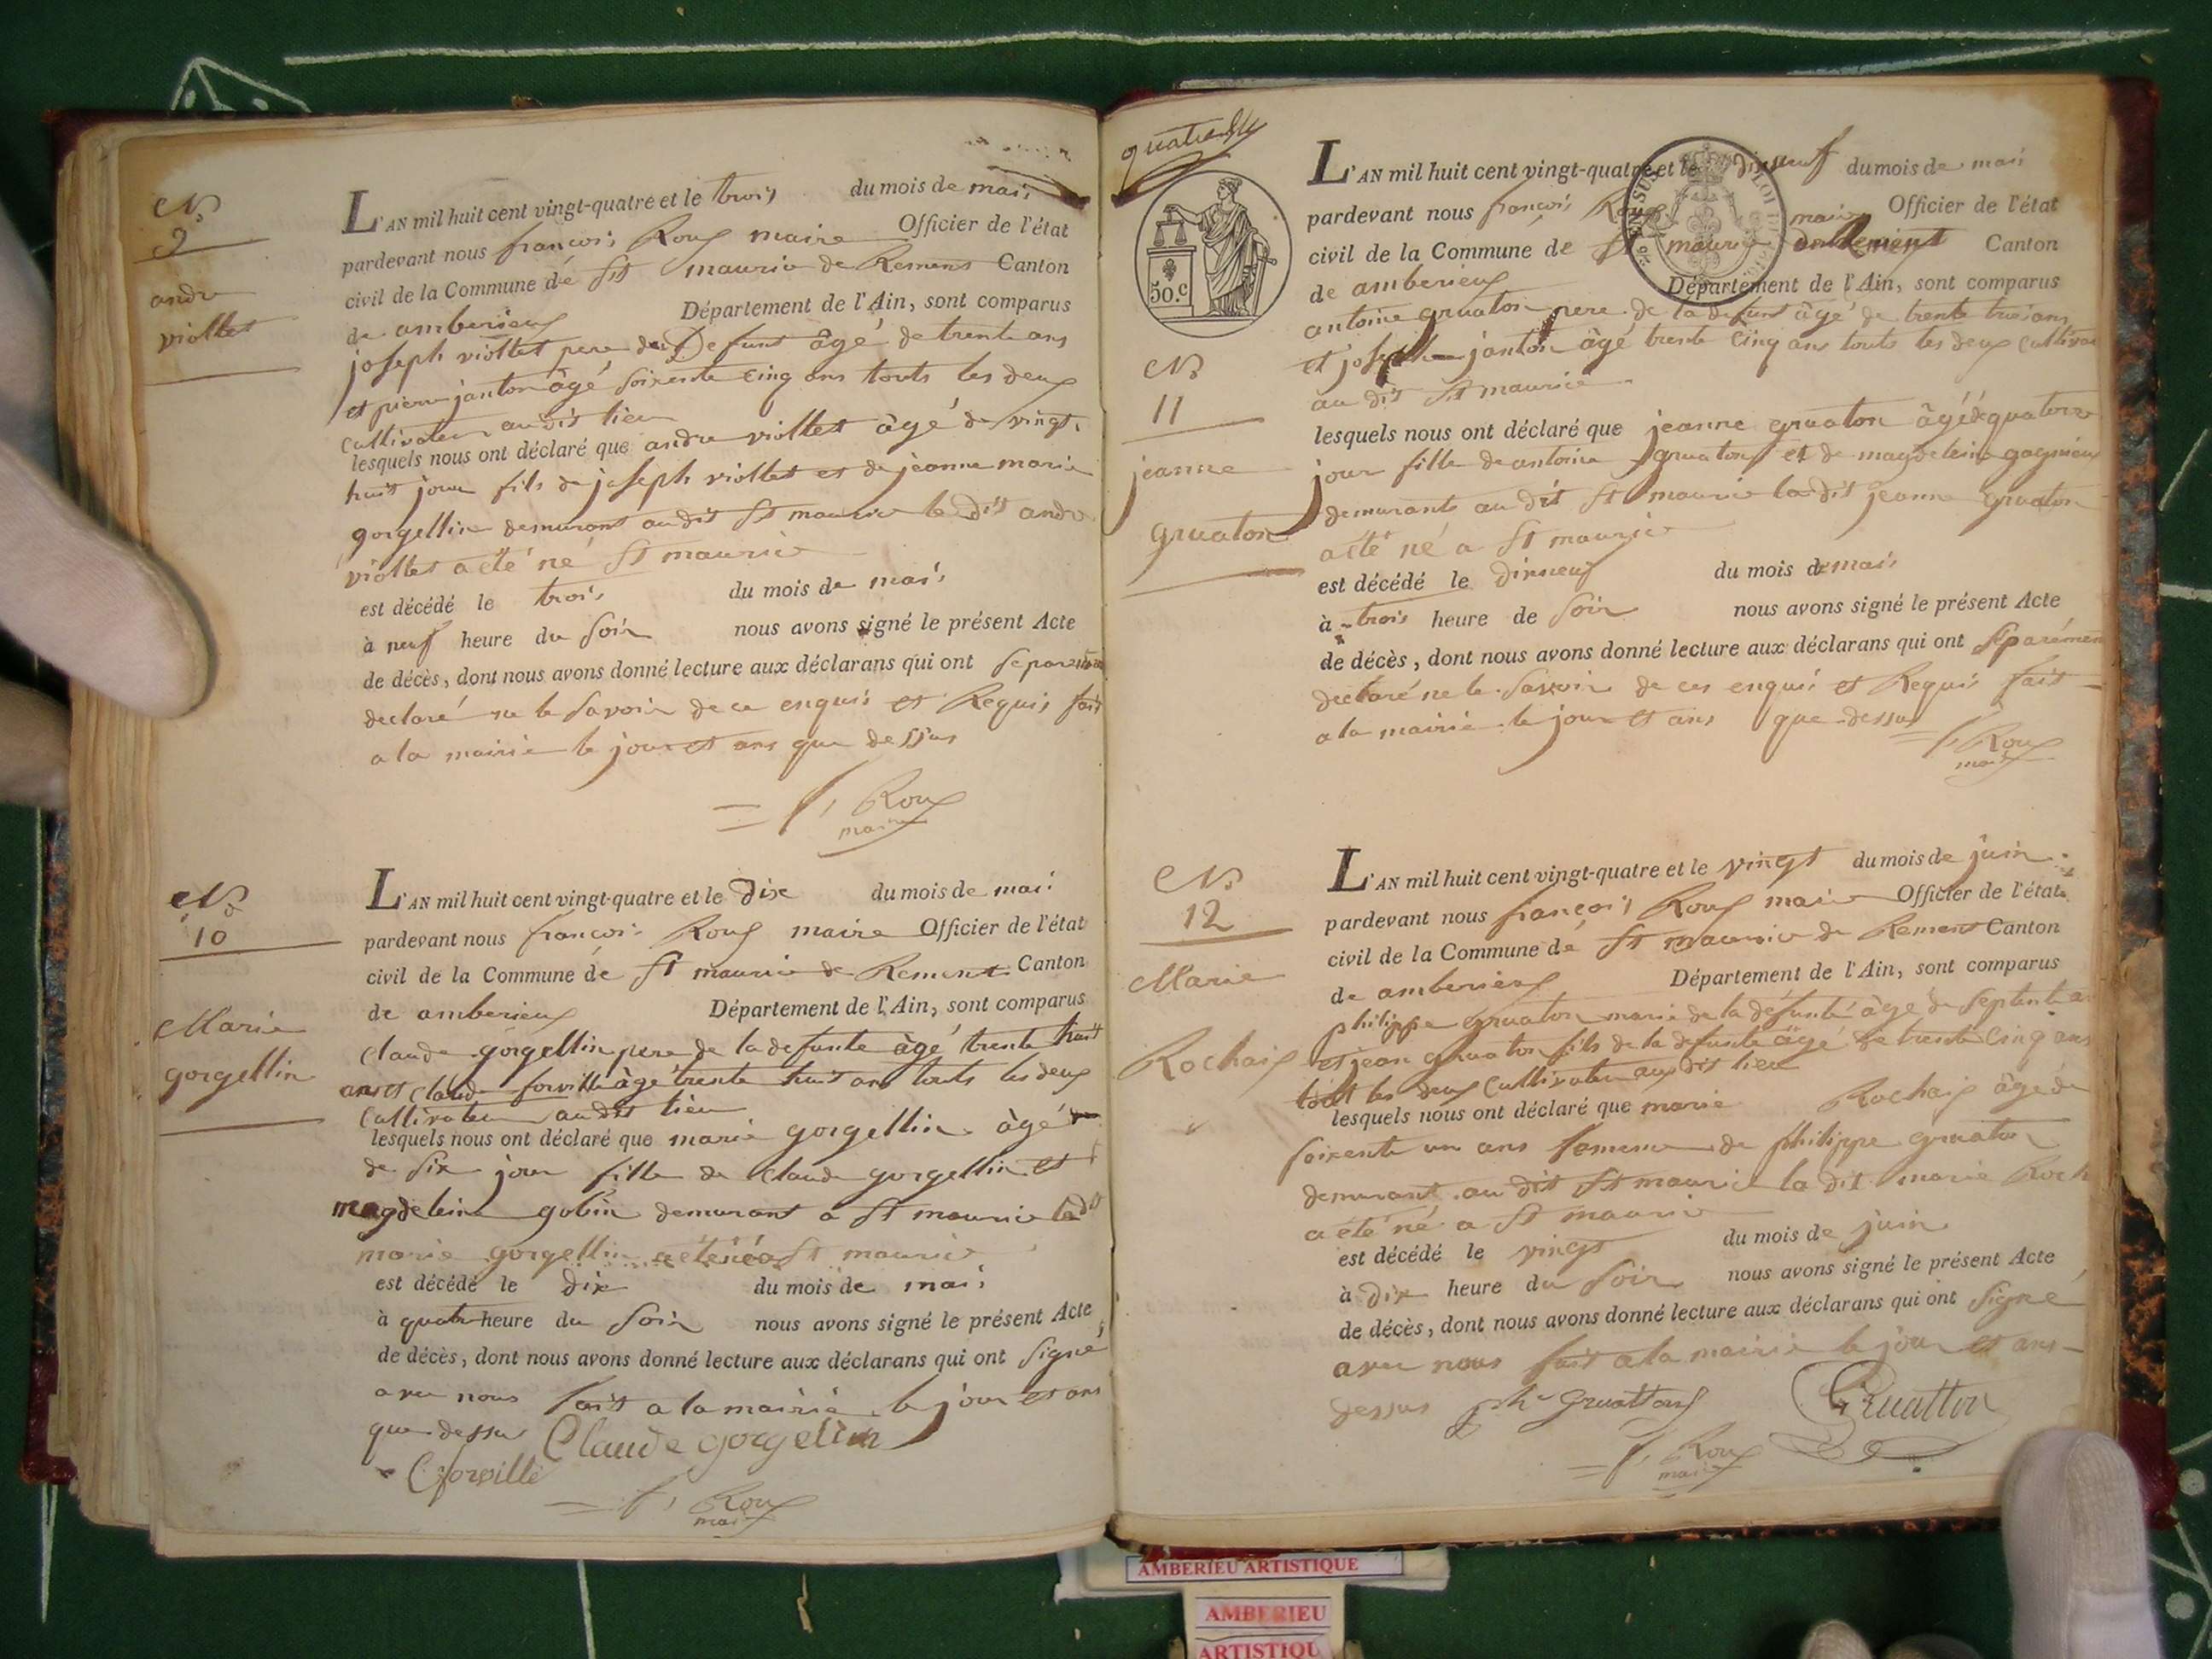 N°
9
andre
viollet
L'AN mil huit cent vingt-quatre et le trois du mois de mai
pardevant nous françois Roux maire Officier de l'état
civil de la Commune de St maurice de Remens Canton
de amberieux Département de l'Ain, sont comparus
joseph viollet pere du Defunt âgé de trente ans
et pierre janton âgé soixente cinq ans touts les deux
Cultivateur au dit lieu
lesquels nous ont déclaré que andre viollet âgé de vingt
huit jour fils de joseph viollet et de jeanne marie
gorgellin demurant au dit St maurice le dit andre
viollet a été né St maurice
est décédé le trois du mois de mai
à neuf heure du Soir nous avons signé le présent Acte
de décès, dont nous avons donné lecture aux déclarans qui ont
declaré ne le Savoir de ce enquis et Requis fait
a la mairie le jour et ans que dessus
f, Roux
maire
N°
10
Marie
gorgellin
L'AN mil huit cent vingt-quatre et le Dix du mois de mai
pardevant nous françois Roux maire Officier de l'état
civil de la Commune de St maurice de Remens Canton
de amberieux Département de l'Ain, sont comparus
Claude gorgellin pere de la defunte âgé trente huit
ans et Claude forville âgé trente huit ans touts les deux
Cultivateur au dit lieu
lesquels nous ont déclaré que marie gorgellin âgé
de Six jour fille de Claude gorgellin et
magdeleine gobin demurant a St maurice la dit
marie gorgellin a été née a St maurice
est décédé le dix du mois de mai
à quatre heure du Soir nous avons signé le présent Acte
de décès, dont nous avons donné lecture aux déclarans qui ont Signé
avec nous fait a la mairie le jour et ans
que dessus Claude gorgelin
Cforville
f, Roux
maire
50. C
N°
11
jeanne
gruaton
L'AN mil huit cent vingt-quatre et le Dixneuf du mois de mai
pardevant nous françois Roux maire Officier de l'état
civil de la Commune de St maurice de Remens Canton
de amberieux Département de l'Ain, sont comparus
antoine gruaton pere de la defunt âgé de trente trois ans
et joseph janton âgé trente Cinq ans touts les deux Cultivat
au dit St maurice
lesquels nous ont déclaré que jeanne gruaton âgé de quatorze
jour fille de antoine gruaton et de magdeleine gagnieux
demurante au dit St maurice la dit jeanne gruaton
a été né a St maurice
est décédé le dixneuf du mois de mai
à trois heure de Soir nous avons signé le présent Acte
de décès, dont nous avons donné lecture aux déclarans qui ont Sparémen
declaré ne le Savoir de ces enquis et Requis fait
a la mairie le jour et ans que dessus
f, Roux
maire
N°
12
Marie
Rochaix
L'AN mil huit cent vingt-quatre et le vingt du mois de juin
pardevant nous françois Roux maire Officier de l'état
civil de la Commune de St maurice de Remens Canton
de amberieux Département de l'Ain, sont comparus
philippe gruaton marie de la défunte âge de Septente
et jean gruaton fils de la defunte âgé de trente Cinq ans
tout les deux Cultivateur au dit lieu
lesquels nous ont déclaré que marie Rochaix âgé de
soixente un ans femme de philippe gruaton
demurant au dit St maurice la dit marie Roch
a été né a St maurice
est décédé le vingt du mois de juin
à Dix heure du Soir nous avons signé le présent Acte
de décès, dont nous avons donné lecture aux déclarans qui ont Signé
avec nous fait a la mairie le jour et ans
dessus ph Gruatton Gruatton
f, Roux
maire
AMBERIEU ARTISTIQUE
AMBERIEU
ARTISTIQU